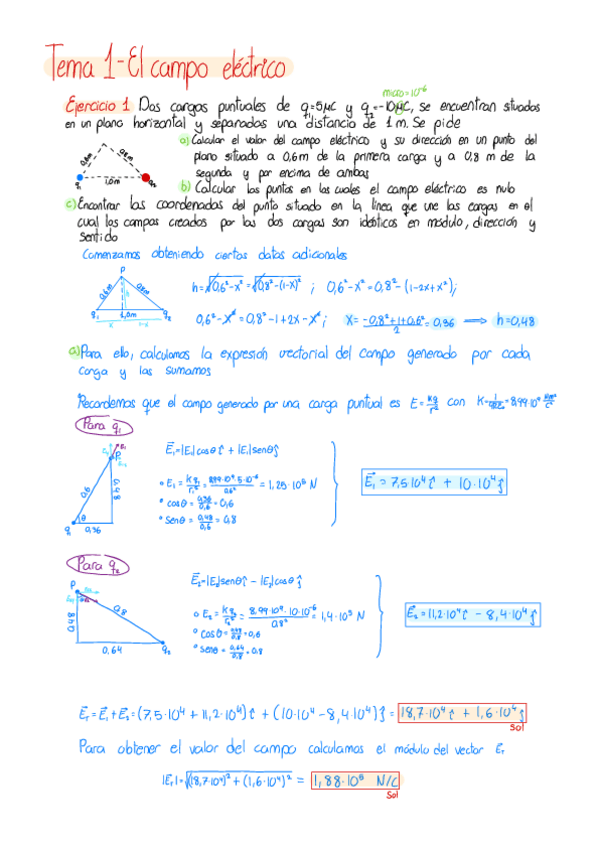 Tema 1 - El campo eléctrico
micro = 10⁻⁶
Ejercicio 1 Dos cargas puntuales de q₁=5μC y q₂=-10μC, se encuentran situadas
en un plano horizontal y separadas una distancia de 1 m. Se pide
a) Calcular el valor del campo eléctrico y su dirección en un punto del
plano situado a 0,6m de la primera carga y a 0,8 m de la
segunda y por encima de ambas
0,6m 0,8m
q₁ 1,0m q₂
b) Calcular los puntos en los cuales el campo eléctrico es nulo
c) Encontrar las coordenadas del punto situado en la línea que une las cargas en el
cual los campos creados por las dos cargas son idénticos en módulo, dirección y
sentido
Comenzamos obteniendo ciertos datos adicionales
P
0,6m h 0,8m
q₁ 1,0m q₂
x 1-x
h = √0,6²-x² = √0,8²-(1-x)² ; 0,6²-x² = 0,8²-(1-2x+x²);
0,6²-x² = 0,8²-1+2x-x² ; x = -0,8²+1+0,6²/2 = 0,36 ⟹ h=0,48
a) Para ello, calculamos la expresión vectorial del campo generado por cada
carga y las sumamos
Recordemos que el campo generado por una carga puntual es E = kq/r² con K = 1/4πε₀ = 8,99·10⁹ Nm²/C²
Para q₁
E⃗₁ = |E₁|cosθ î + |E₁|senθ ĵ
P E₁
0,6 0,48
θ
q₁ 0,36
• E₁ = kq₁/r₁² = 8,99·10⁹·5·10⁻⁶/0,6² = 1,25·10⁵ N
• cosθ = 0,36/0,6 = 0,6
• senθ = 0,48/0,6 = 0,8
E⃗₁ = 7,5·10⁴ î + 10·10⁴ ĵ
Para q₂
E⃗₂ = |E₂|senθ î - |E₂|cosθ ĵ
P
0,48 0,8
0,64 q₂
• E₂ = kq₂/r₂² = 8,99·10⁹·10·10⁻⁶/0,8² = 1,4·10⁵ N
• cosθ = 0,48/0,8 = 0,6
• senθ = 0,64/0,8 = 0,8
E⃗₂ = 11,2·10⁴ î - 8,4·10⁴ ĵ
E⃗ₜ = E⃗₁+E⃗₂ = (7,5·10⁴ + 11,2·10⁴) î + (10·10⁴ - 8,4·10⁴) ĵ = 18,7·10⁴ î + 1,6·10⁴ ĵ
Sol
Para obtener el valor del campo calculamos el módulo del vector E⃗ₜ
|E⃗ₜ| = √(18,7·10⁴)² + (1,6·10⁴)² = 1,88·10⁵ N/C
Sol